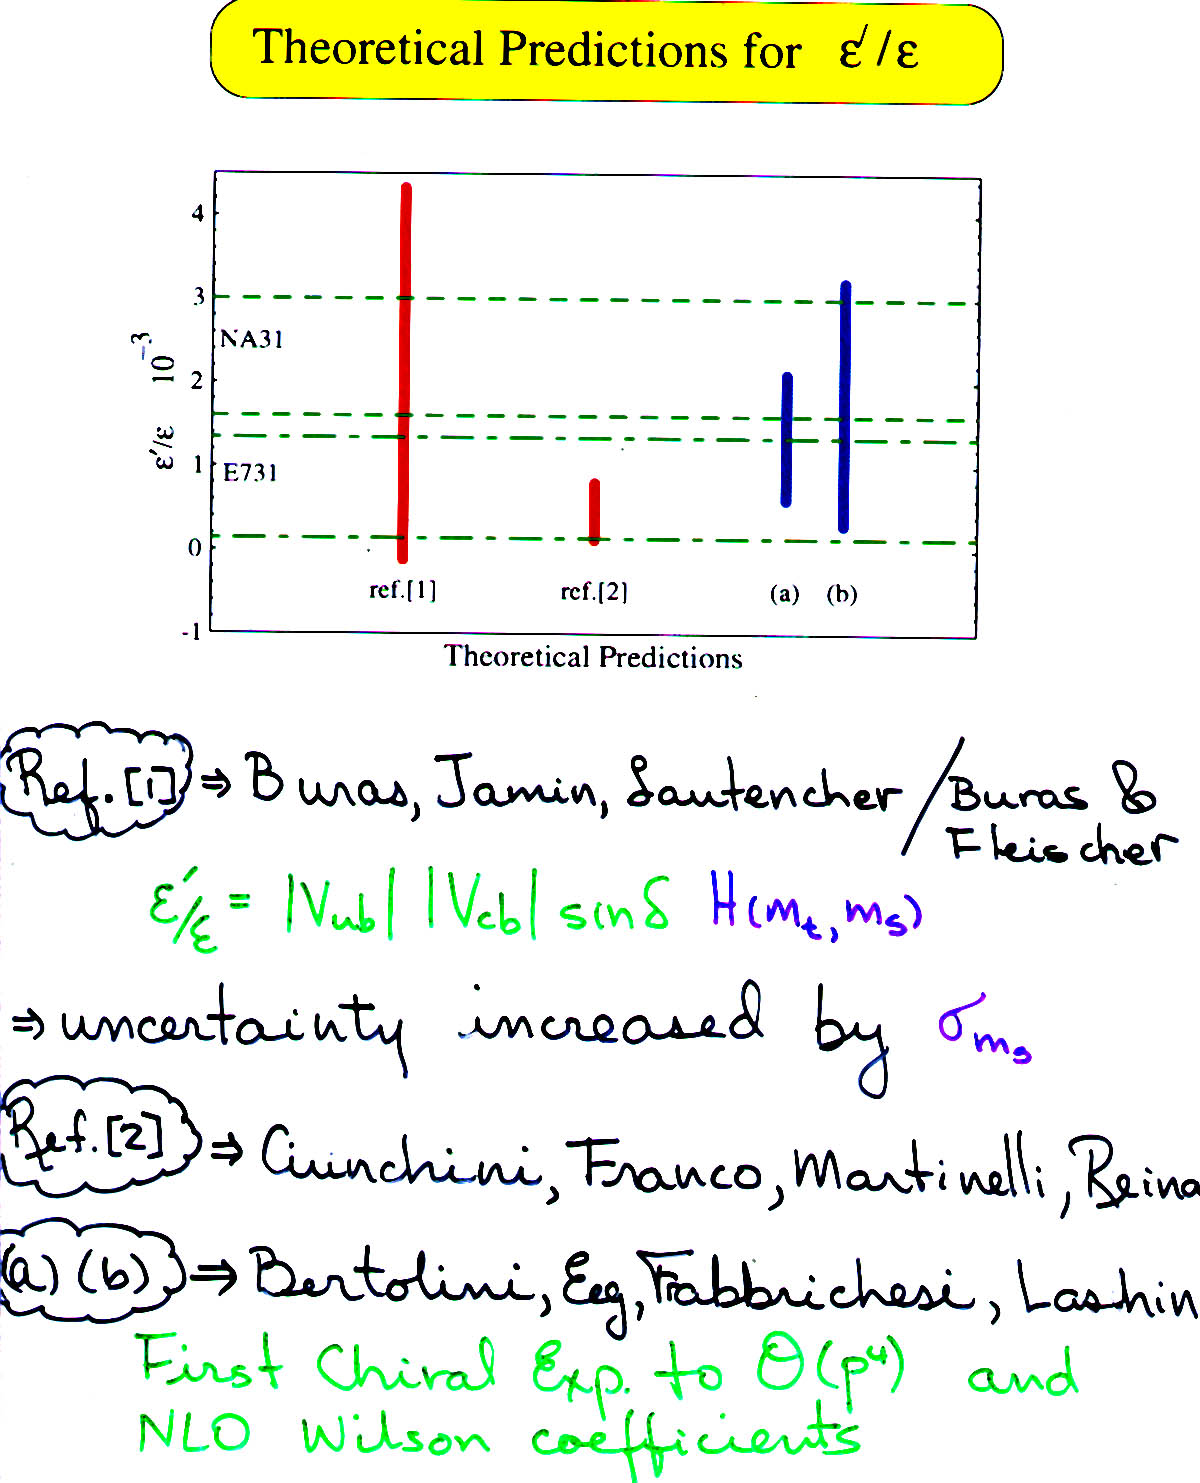 Theoretical Predictions for ε′/ε
4
3
NA31
2
ε′/ε 10⁻³
1
E731
0
ref.[1] ref.[2] (a) (b)
-1
Theoretical Predictions
Ref.[1] ⇒ Buras, Jamin, Lautencher / Buras &
Fleischer
ε′/ε = |Vub| |Vcb| sinδ H(mt, ms)
⇒ uncertainty increased by σms
Ref.[2] ⇒ Ciunchini, Franco, Martinelli, Reina
(a) (b) ⇒ Bertolini, Eeg, Fabbrichesi, Lashin
First Chiral Exp. to O(p⁴) and
NLO Wilson coefficients